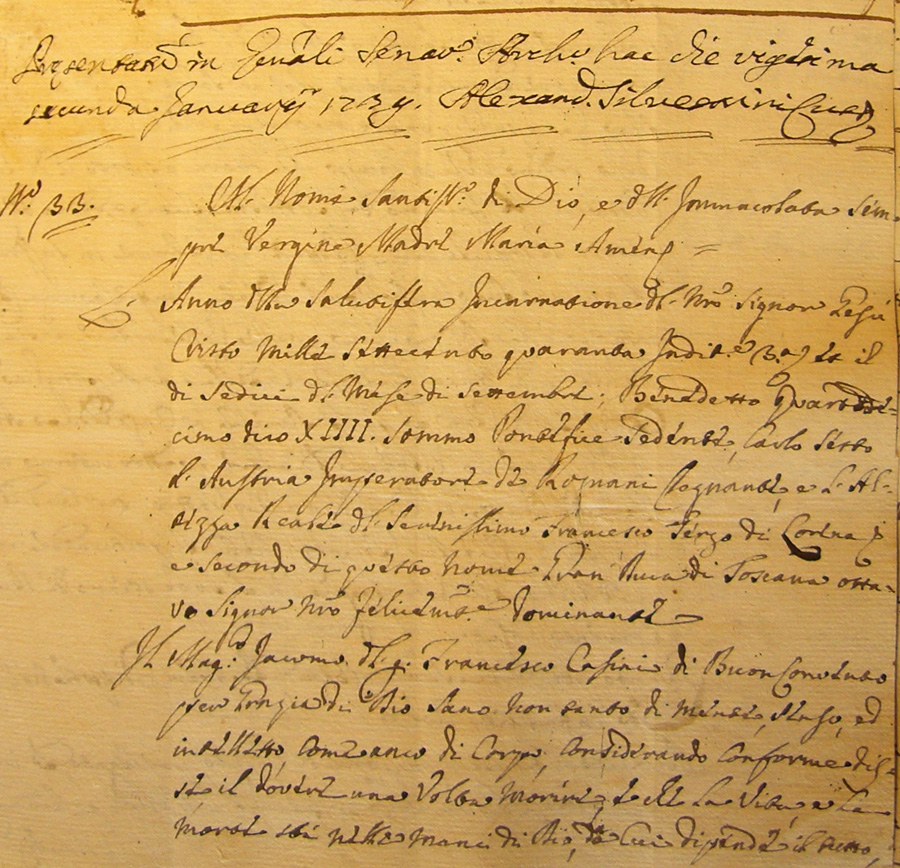 Presentat. in Gen̄ali Senar. Archo. hac die vigesima
secunda Januarij 174. Alexand. Silvestrini
N.o 33. Al Nome Santiss.o di Dio, e dll' Immacolata Sem-
pre Vergine Madre Maria Amen =
Anno dlla Salutiffra Incarnatione dl Nr̄o Signor Gesù
Cristo Mille Settecento quaranta Indit.e 3.a il
dì Sedici dl Mese di Settembre; Benedetto Quartode-
cimo dto XIIII. Sommo Pontefice Sedente, Carlo Sesto
d' Austria Imperatore de Romani Regnante, e l' Al-
tezza Reale dl Serenissimo Francesco Terzo di Lorena
e Secondo di questo nome Gran Duca di Toscana otta-
vo Signor Nr̄o felicem.te Dominante
Il Mag.co Jacomo dl q. Francesco Casini di Buonconvento
per Grazia di Dio Sano non tanto di mente, senso, ed
intelletto, come anco di Corpo, considerando conforme dis-
se il dovere una volta morire, e che la Vita, e la
morte sti nelle mani di Dio, da Cui dipende il tutto